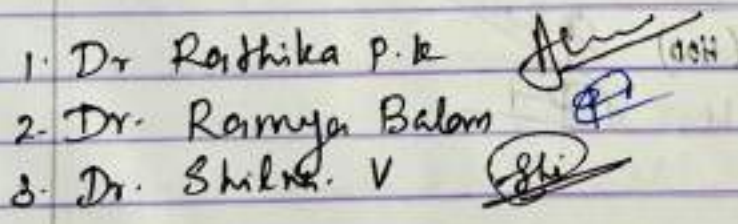 1. Dr Rathika P.k (HOD)
2. Dr. Ramya Balam
3. Dr. Shilna. V Shi